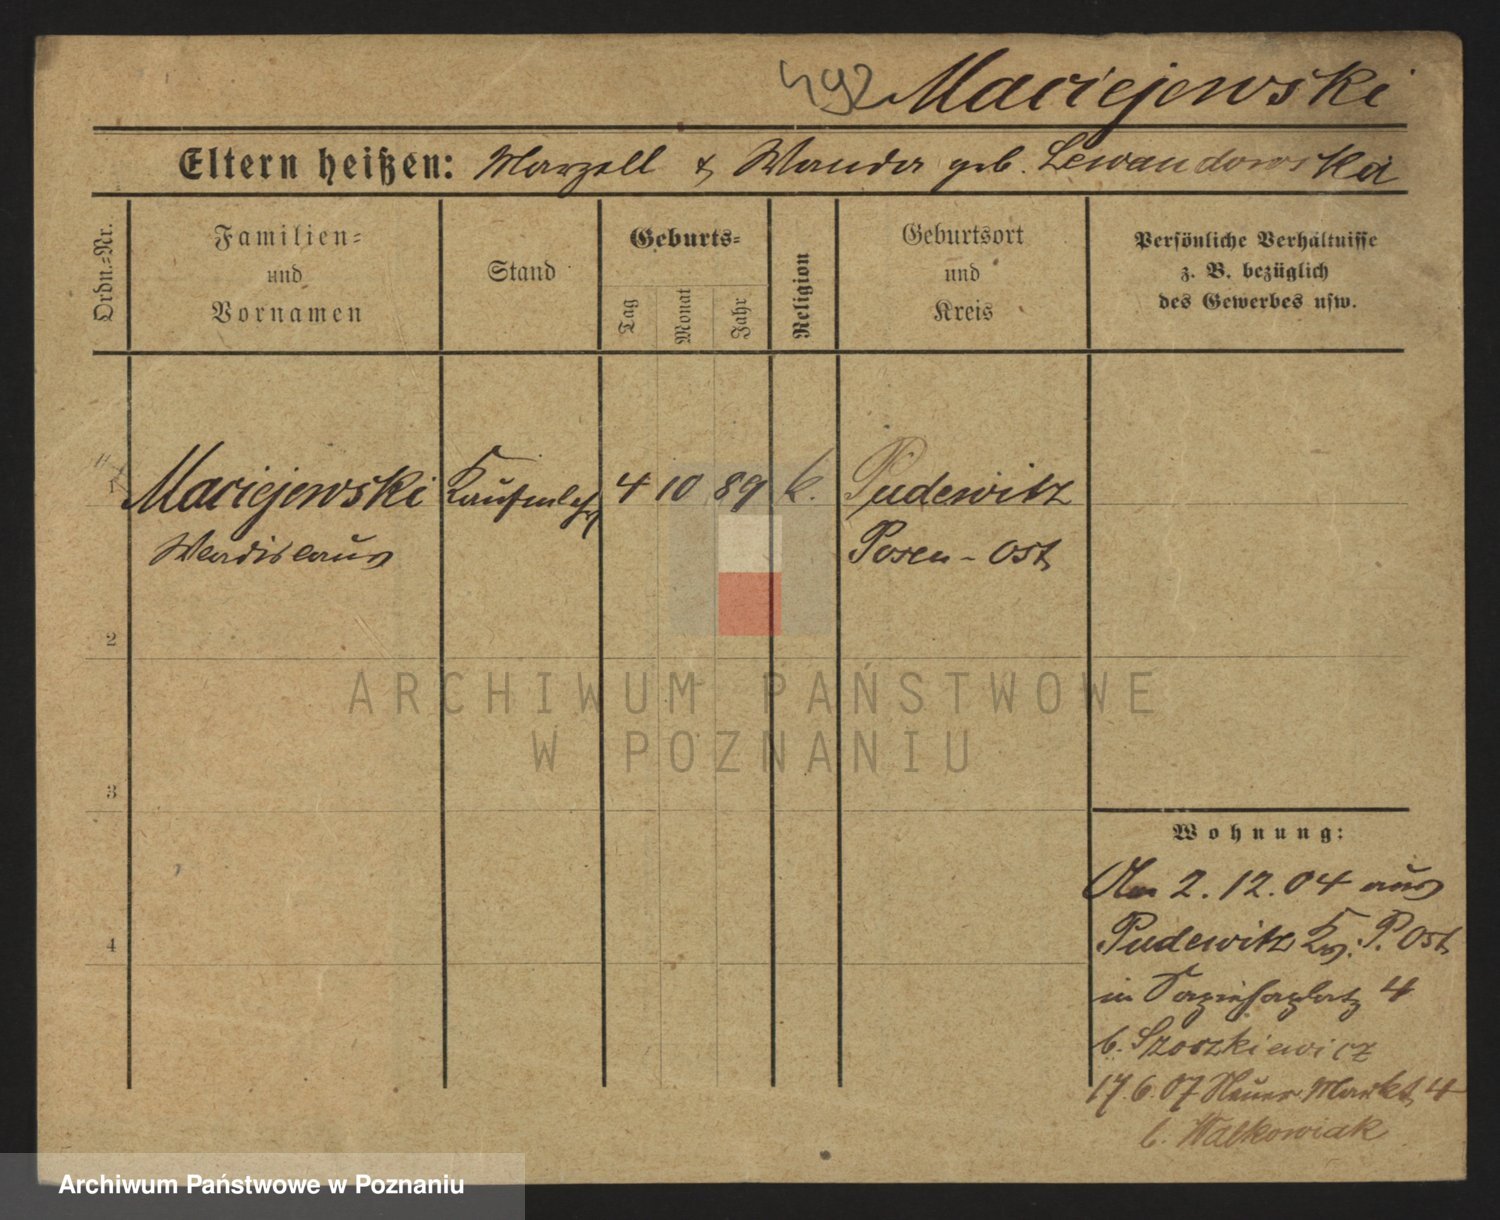 492 Maciejewski
Eltern heißen: Marzell & Wanda geb. Lewandowska
Ordn.=Nr.
Familien=
und
Vornamen
Stand
Geburts=
Tag
Monat
Jahr
Religion
Geburtsort
und
Kreis
Persönliche Verhältnisse
z. B. bezüglich
des Gewerbes usw.
1 Maciejewski Kaufm. 4 10 89 k. Pudewitz
Wladislaus Posen-Ost
2
ARCHIWUM PAŃSTWOWE
W POZNANIU
3
4
Wohnung:
Am 2.12.04 aus
Pudewitz Kr. P. Ost
in Sapiehaplatz 4
b. Szoszkiewicz
17.6.07 Neuer Markt 4
b. Walkowiak
Archiwum Państwowe w Poznaniu